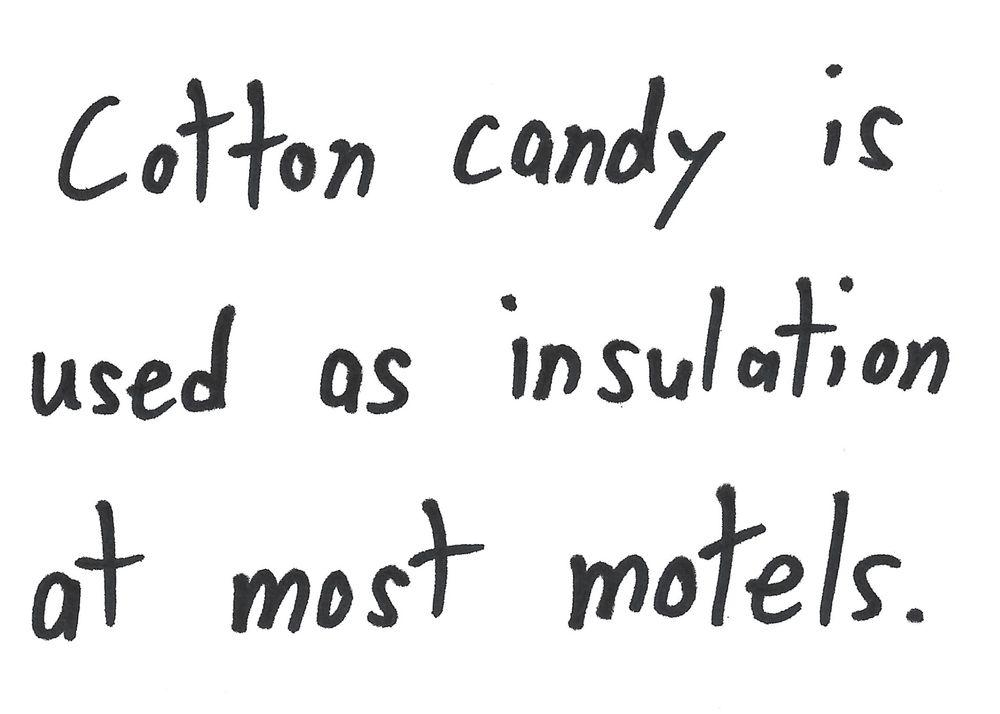 Cotton candy is
used as insulation
at most motels.